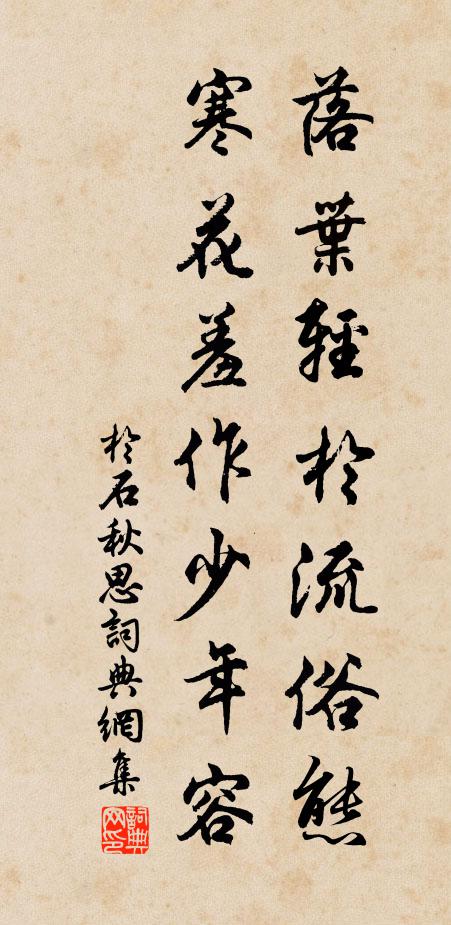 落葉輕於流俗態
寒花羞作少年容
於石秋思詞典網集
詞典网印